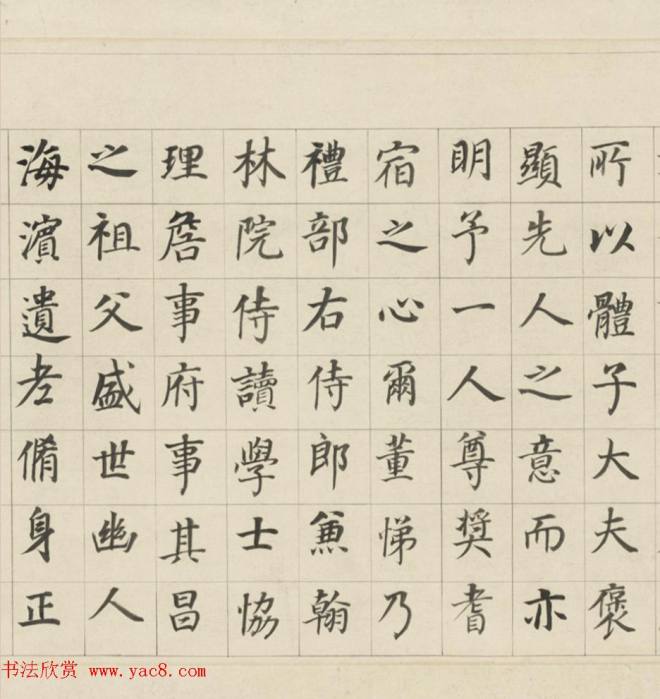 所以體子大夫褒
顯先人之意而亦
明予一人尊奬耆
宿之心爾董悌乃
禮部右侍郎兼翰
林院侍讀學士協
理詹事府事其昌
之祖父盛世幽人
海濵遺老脩身正
书法欣赏 www.yac8.com